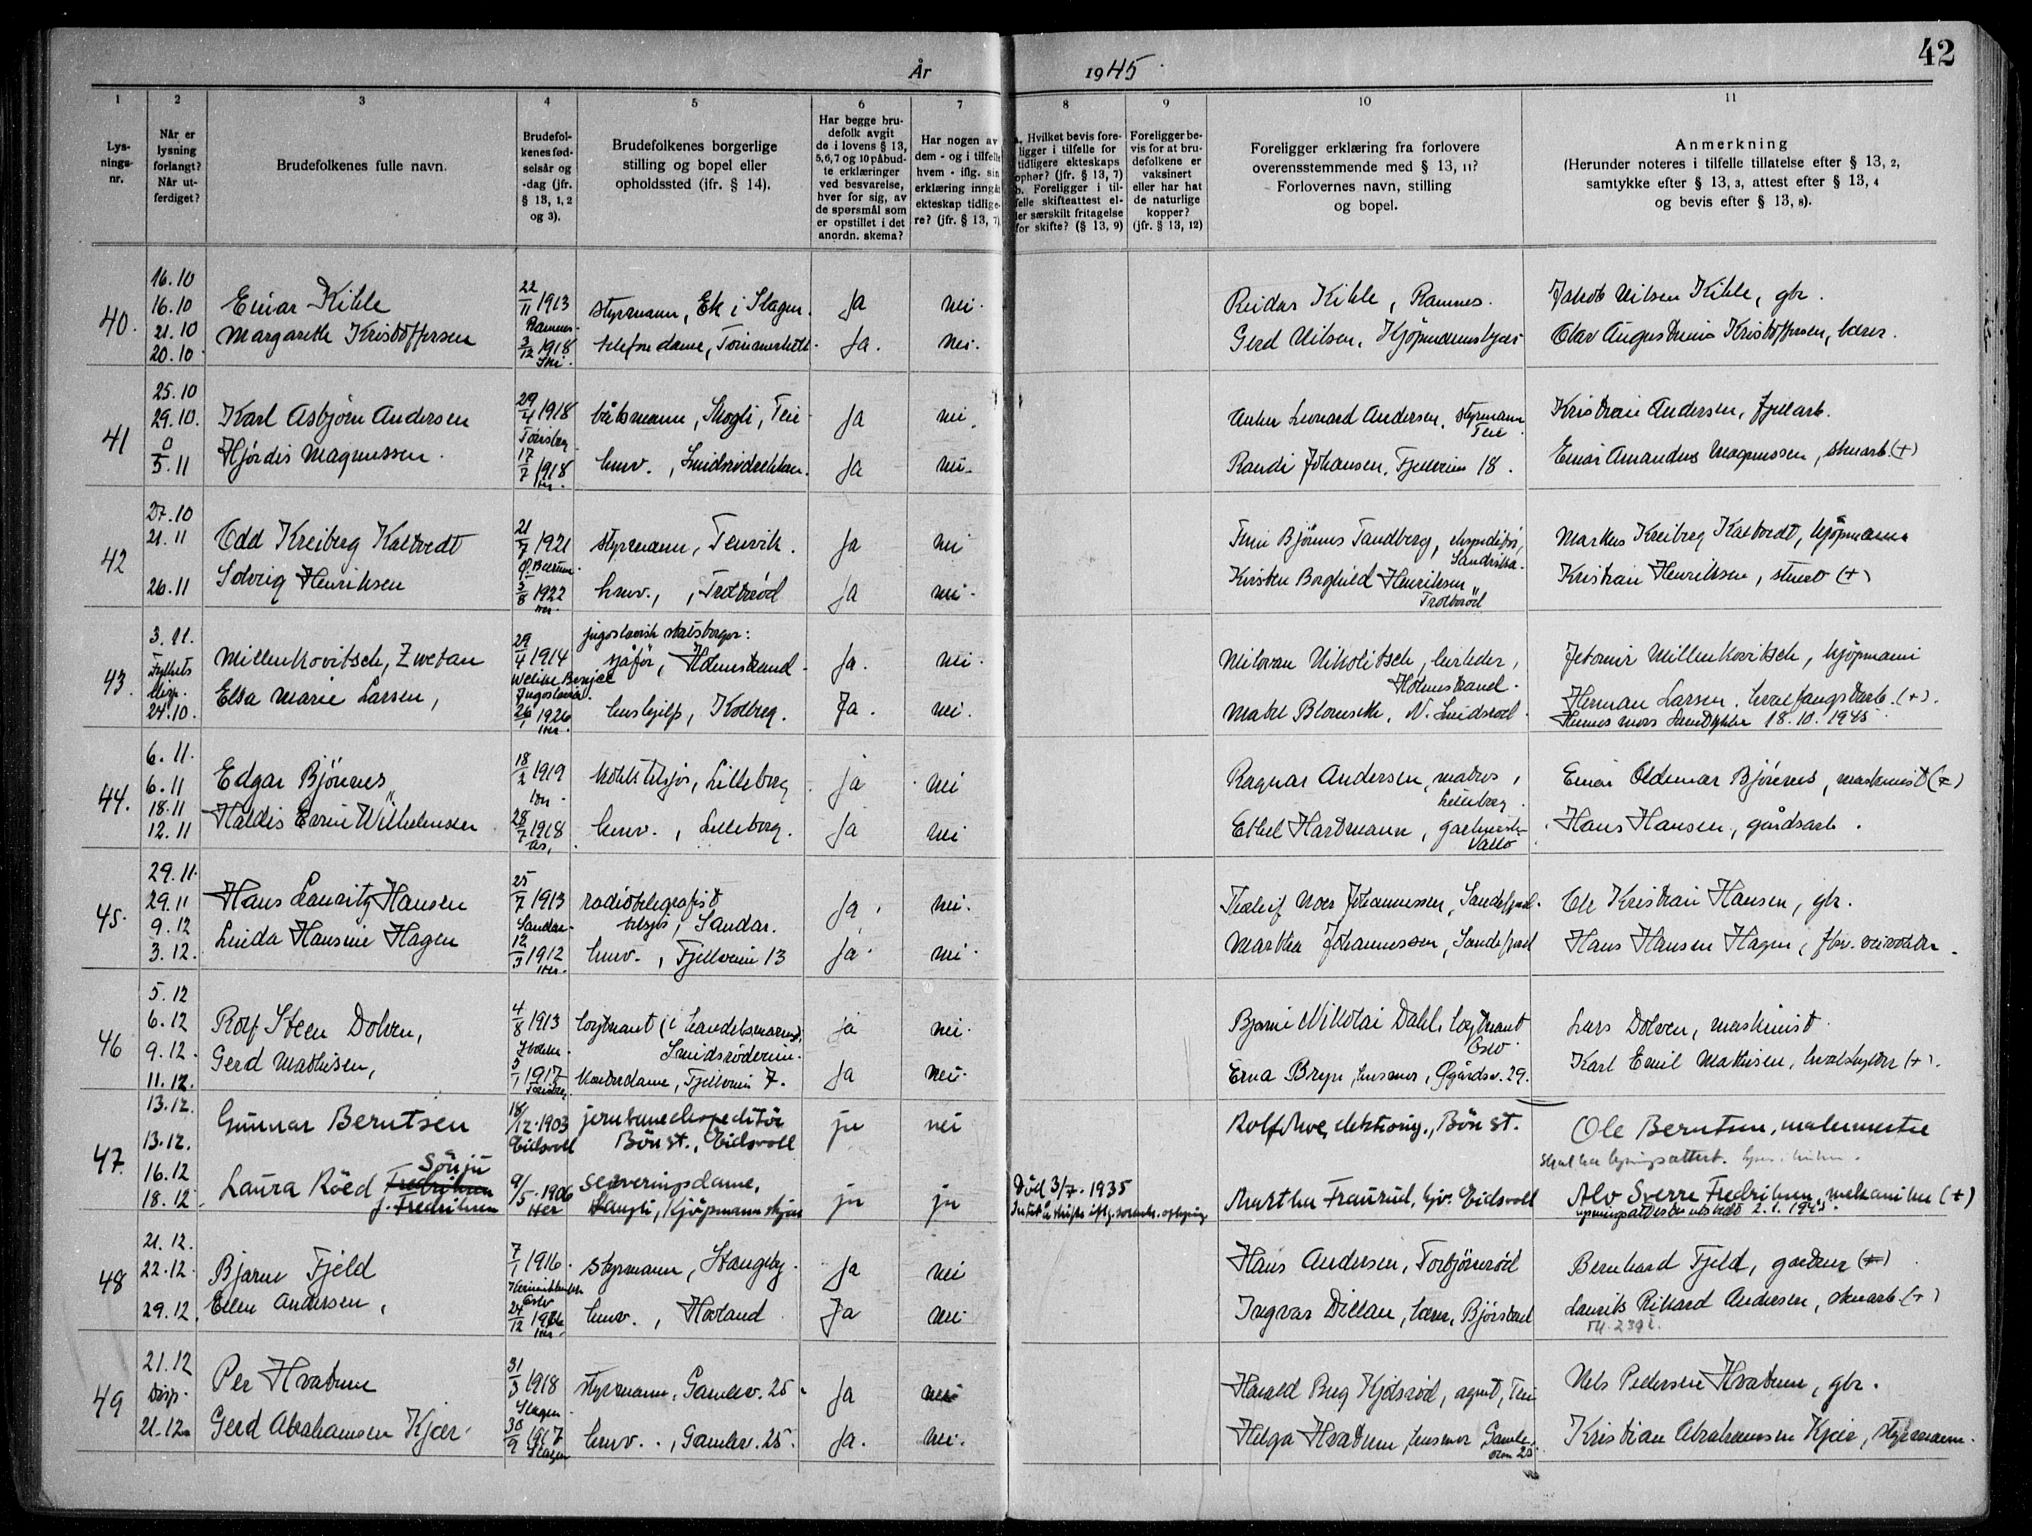 42
År 1945
1 2 3 4 5 6 7 8 9 10 11
Lys-
nings-
nr.
Når er
lysning
forlangt?
Når ut-
ferdiget?
Brudefolkenes fulle navn.
Brudefol-
kenes fød-
selsår og
-dag (jfr.
§ 13, 1, 2
og 3).
Brudefolkenes borgerlige
stilling og bopel eller
opholdssted (ifr. § 14).
Har begge bru-
defolk avgit
de i lovens § 13,
5,6,7 og 10 påbud-
te erklæringer
ved besvarelse,
hver for sig, av
de spørsmål som
er opstillet i det
anordn. skema?
Har nogen av
dem - og i tilfelle
hvem - iflg. sin
erklæring inngå
ekteskap tidlige-
re? (jfr. § 13, 7)
a. Hvilket bevis fore-
ligger i tilfelle for
tidligere ekteskaps
ophør? (jfr. § 13, 7)
b. Foreligger i til-
felle skifteattest el-
ler særskilt fritagelse
for skifte? (§ 13, 9)
Foreligger be-
vis for at bru-
defolkene er
vaksinert
eller har hat
de naturlige
kopper?
(jfr. § 13, 12)
Foreligger erklæring fra forlovere
overensstemmende med § 13, 11?
Forlovernes navn, stilling
og bopel.
Anmerkning
(Herunder noteres i tilfelle tillatelse efter § 13, 2,
samtykke efter § 13, 3, attest efter § 13, 4
og bevis efter § 13, 8).
40.
16.10
16.10
21.10
20.10
Einar Kihle 22/11 1913 Ramnes styrmann, Ek i Slagen. Ja nei. Reidar Kihle, Ramnes. Jakob Nilsen Kihle, gbr.
Margareth Kristoffersen 3/12 1918 Ski. telefondame, Ja. nei. Gerd Nilsen, Kjøpmannskjær Olav Kristoffersen, lærer.
41
25.10
29.10.
0
5.11
Karl Asbjørn Andersen 29/4 1918 Tønsberg båtsmann, Skogli, Teie Ja nei. Anker Leonard Andersen, styrmann Teie Kristian Andersen, fjellarb.
Hjørdis Magnussen. 17/7 1918 her. husv., Smidsrødrekken. Ja nei. Randi Johansen, Fjellveien 18. Einar Amandus Magnussen, stuearb (+)
42
27.10
21.11
26.11
Odd Kreiberg Kaltvedt 21/7 1921 Ø. Bærum styrmann, Tenvik. Ja nei Bjørnes Tandberg, ekspeditør, Sandvika. Markus Kreiberg Kaltvedt, kjøpmann
Solveig Henriksen 3/8 1922 her. husv., Trotterød Ja nei. Kirsten Borghild Henriksen, Trotterød Kristian Henriksen, stuert (+)
43.
3.11.
Fylkets
disp.
24.10.
jugoslavisk statsborger:
Millenkovitsch, Zwetan 29/4 1914 Jugoslavia. sjåfør, Holmestrand Ja. nei. Milovan Nikolitsch, Holmestrand. Jetomir Millenkovitsch, kjøpmann
Elsa Marie Larsen, 26/1 1926 her. hushjelp, Kolberg. Ja. nei. Mabel N. Smidsrød. Herman Larsen, hvalfangstarb. (+).
Hennes mors samtykke 18.10.1945
44.
6.11.
6.11
18.11
12.11
Edgar Bjønnes 18/2 1919 her. kokk tilsjøs, Lilleborg ja nei Ragnar Andersen, matros, Lilleborg. Einar Oldemar Bjønnes, maskinist (+)
Haldis Evine Wilhelmsen 28/7 1918 Ås. husv., Lilleborg. Ja nei Ethel Hartmann, Vallø Hans Hansen, gårdsarb.
45.
29.11.
29.11
9.12
3.12.
Hans Lauritz Hansen 25/7 1913 Sandar. radiotelegrafist tilsjøs, Sandar. Ja. nei. Tholeif Moer Johannessen, Sandefjord. Ole Kristian Hansen, gbr.
Linda Hansine Hagen 12/3 1912 her. husv., Fjellveien 13 Ja. nei. Martha Johannessen, Sandefjord Hans Hansen Hagen, fhv. veivokter.
46
5.12
6.12
9.12.
11.12.
Rolf Steen Dolven, 4/8 1913 løytnant (i handelsmarinen), Smidsrødveien. ja nei. Bjarne Nikolai Dahl, løytnant Oslo. Lars Dolven, maskinist.
Gerd Mathisen, 5/1 1917 kontordame, Fjellveien 7. Ja nei. Erna Bryn, husmor, Øgårdsv. 29. Karl Emil Mathisen, hvalskytter (+).
47.
13.12.
13.12.
16.12
18.12.
Gunnar Berntsen 18/12 1903 Eidsvoll jernbaneekspeditør Bøn st., Eidsvoll ja nei Rolf Moe, elektroing., Bøn st. Ole Berntsen, malermester
Skal ha lysningsattest.
Laura Røed Sönju Fredriksen f. Fredriksen 9/5 1906 Her serveringsdame, Haugli, Kjøpmannskjær ja ja Död 3/7 1935 Martha Fraurud, hjv. Eidsvoll Alv Sverre Fredriksen, mekaniker (+)
lysningsattest utstedt 2.1.1945.
48
21.12.
22.12.
29.12.
Bjarne Fjeld 7/1 1916. Oslo styrmann, Stangeby. Ja nei Hans Andersen, Torbjørnrød Bernhard Fjeld, gartner (+)
Ellen Andersen, 24/12 her. husv., Hovland Ja nei Ingvar Dillan, lærer, Laurits Rikard Andersen, stuearb (+)
49
21.12
Disp.
21.12
Per Hvatum 31/3 1918 Slagen styrmann, Gamlev. 25. Ja nei Harald Kjølsrød, agent, Teie Nils Pedersen Hvatum, gbr.
Gerd Abrahamsen Kjær. 30/9 1917 Slagen husv., Gamlev. 25. Ja. nei. Helga Hvatum, husmor Gamleveien 25 Kristian Abrahamsen Kjær, styrmann.